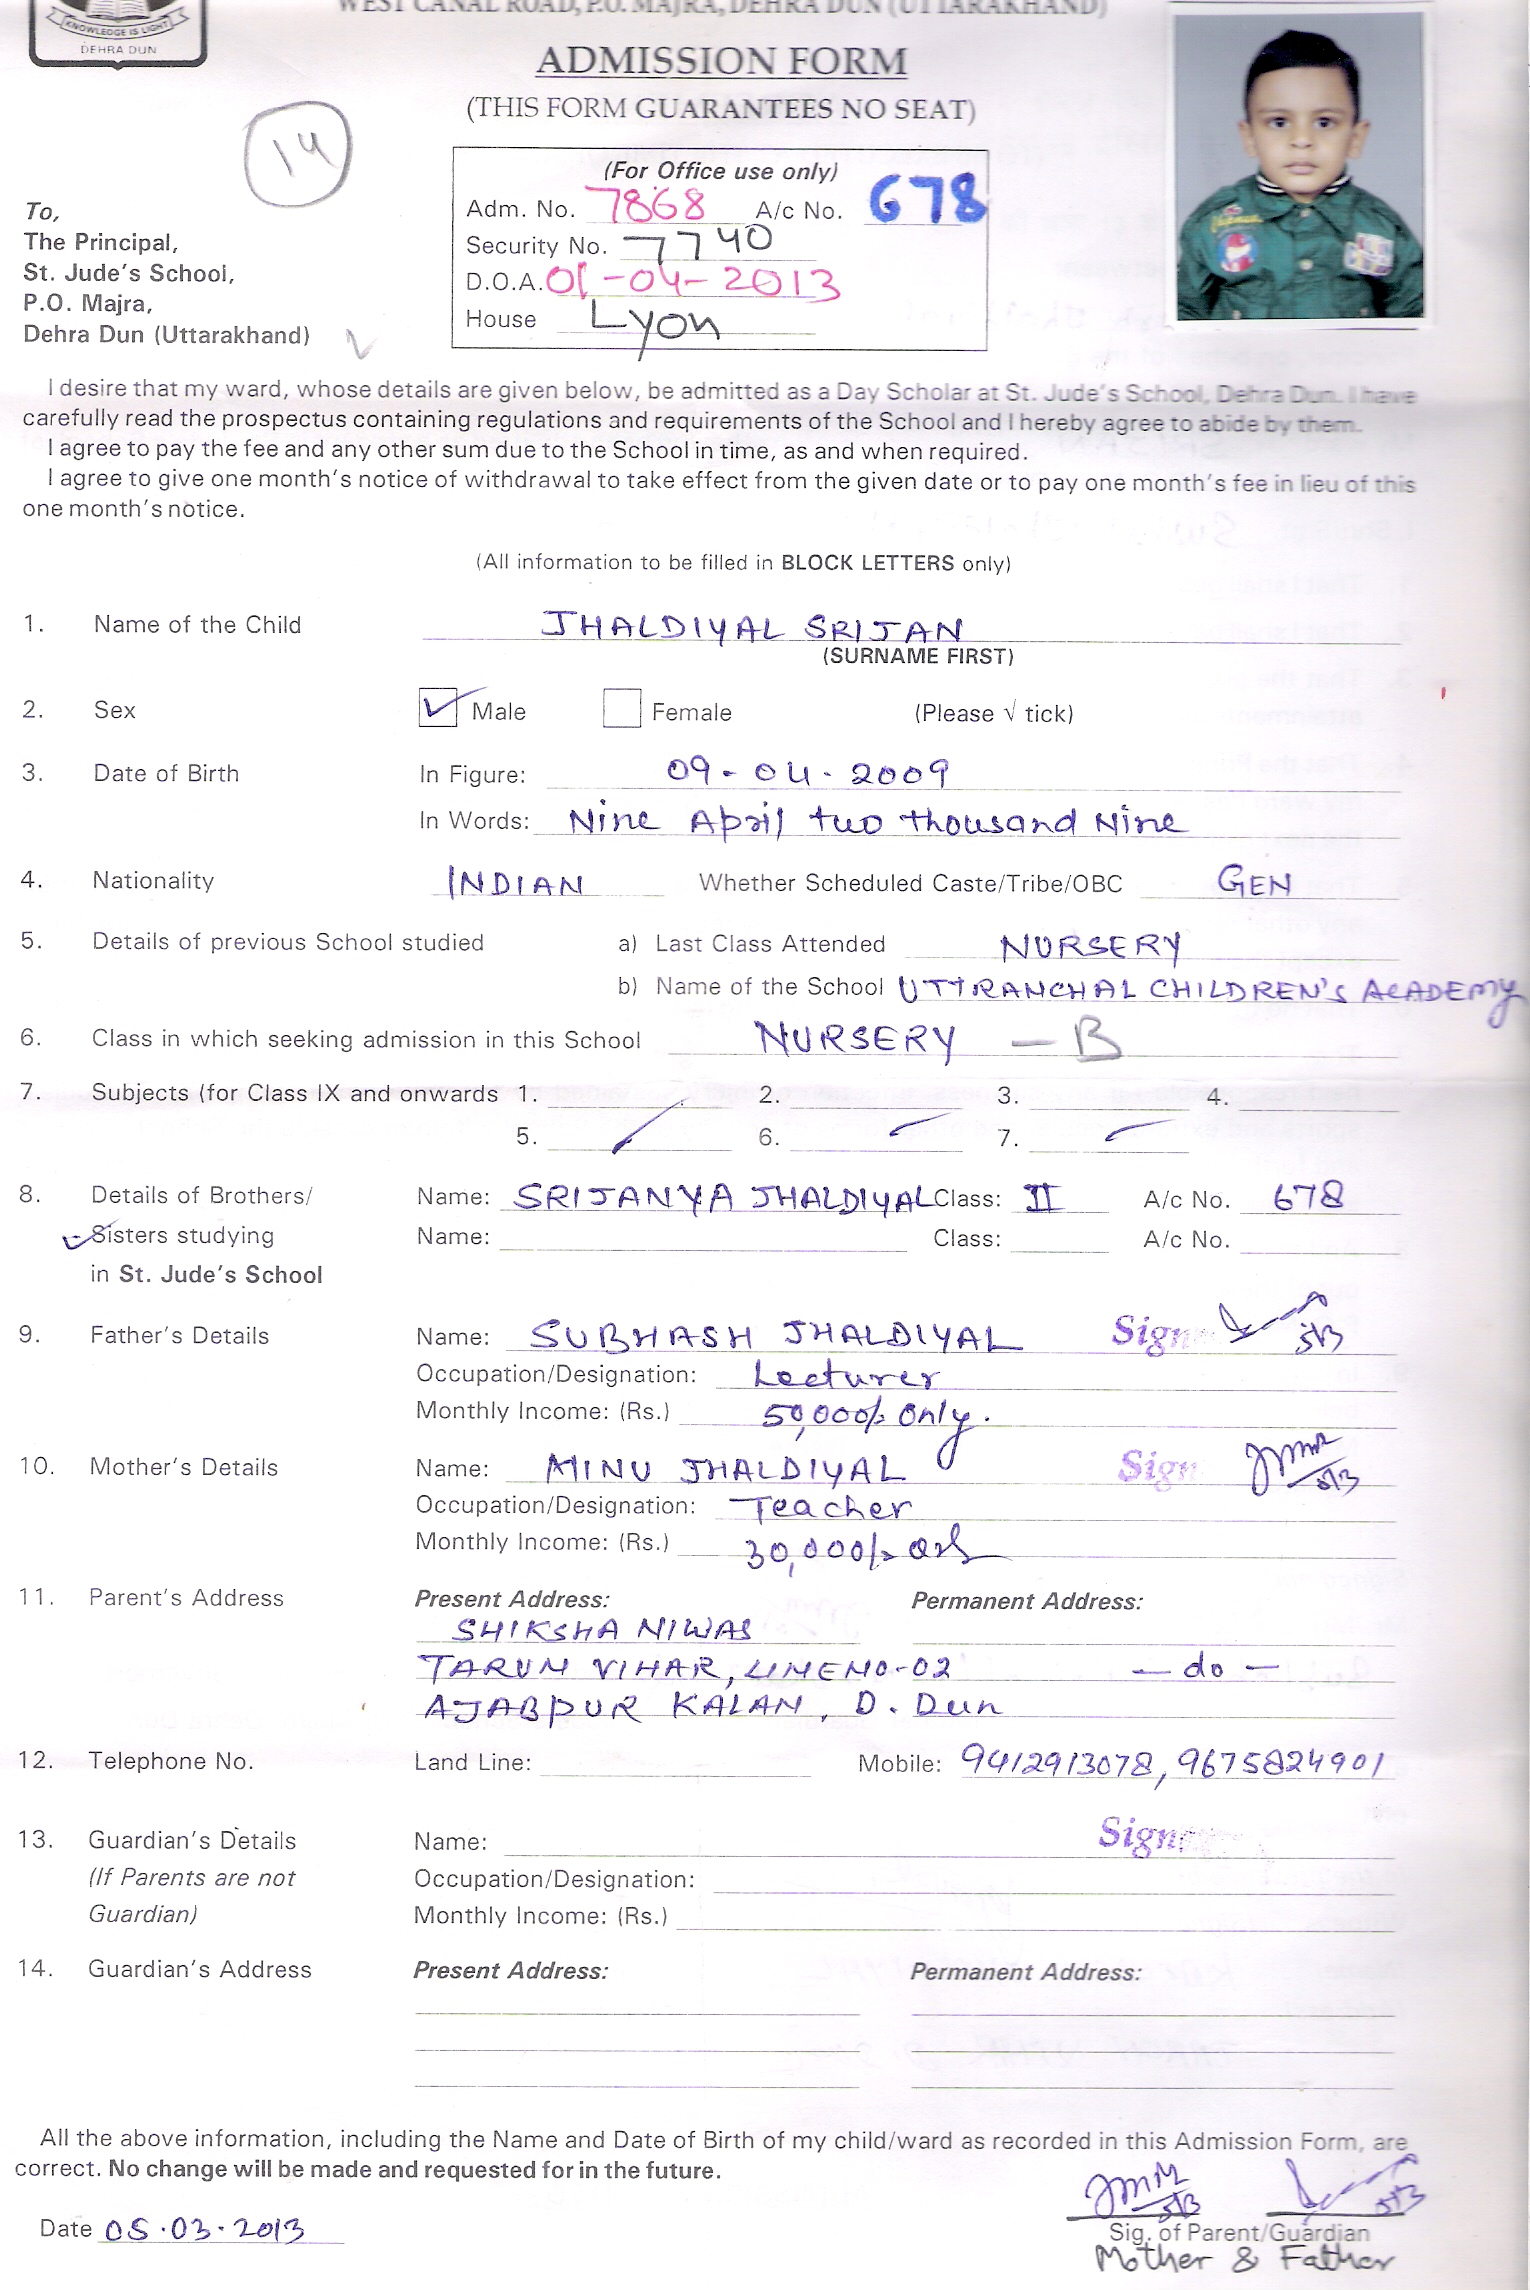 WEST CANAL ROAD, P.O. MAJRA, DEHRA DUN (UTTARAKHAND)
KNOWLEDGE IS LIGHT
DEHRA DUN
ADMISSION FORM
(THIS FORM GUARANTEES NO SEAT)
14
(For Office use only)
Adm. No. 7868 A/c No. 678
Security No. 7740
D.O.A. 01-04-2013
House Lyon
To,
The Principal,
St. Jude's School,
P.O. Majra,
Dehra Dun (Uttarakhand)
I desire that my ward, whose details are given below, be admitted as a Day Scholar at St. Jude's School, Dehra Dun. I have
carefully read the prospectus containing regulations and requirements of the School and I hereby agree to abide by them.
I agree to pay the fee and any other sum due to the School in time, as and when required.
I agree to give one month's notice of withdrawal to take effect from the given date or to pay one month's fee in lieu of this
one month's notice.
(All information to be filled in BLOCK LETTERS only)
1. Name of the Child JHALDIYAL SRIJAN
(SURNAME FIRST)
2. Sex Male Female (Please √ tick)
3. Date of Birth In Figure: 09-04-2009
In Words: Nine April two thousand Nine
4. Nationality INDIAN Whether Scheduled Caste/Tribe/OBC GEN
5. Details of previous School studied a) Last Class Attended NURSERY
b) Name of the School UTTRANCHAL CHILDREN'S ACADEMY
6. Class in which seeking admission in this School NURSERY - B
7. Subjects (for Class IX and onwards 1. 2. 3. 4.
5. 6. 7.
8. Details of Brothers/ Name: SRIJANYA JHALDIYAL Class: II A/c No. 678
Sisters studying Name: Class: A/c No.
in St. Jude's School
9. Father's Details Name: SUBHASH JHALDIYAL Sign 5/3
Occupation/Designation: Lecturer
Monthly Income: (Rs.) 50,000/- Only.
10. Mother's Details Name: MINU JHALDIYAL Sign 5/3
Occupation/Designation: Teacher
Monthly Income: (Rs.) 30,000/-
11. Parent's Address Present Address: Permanent Address:
SHIKSHA NIWAS
TARUN VIHAR, LINE NO-02 - do -
AJABPUR KALAN, D. Dun
12. Telephone No. Land Line: Mobile: 9412913078, 9675824901
13. Guardian's Details Name: Sign
(If Parents are not Occupation/Designation:
Guardian) Monthly Income: (Rs.)
14. Guardian's Address Present Address: Permanent Address:
All the above information, including the Name and Date of Birth of my child/ward as recorded in this Admission Form, are
correct. No change will be made and requested for in the future.
5/3 5/3
Date 05.03.2013
Sig. of Parent/Guardian
Mother & Father